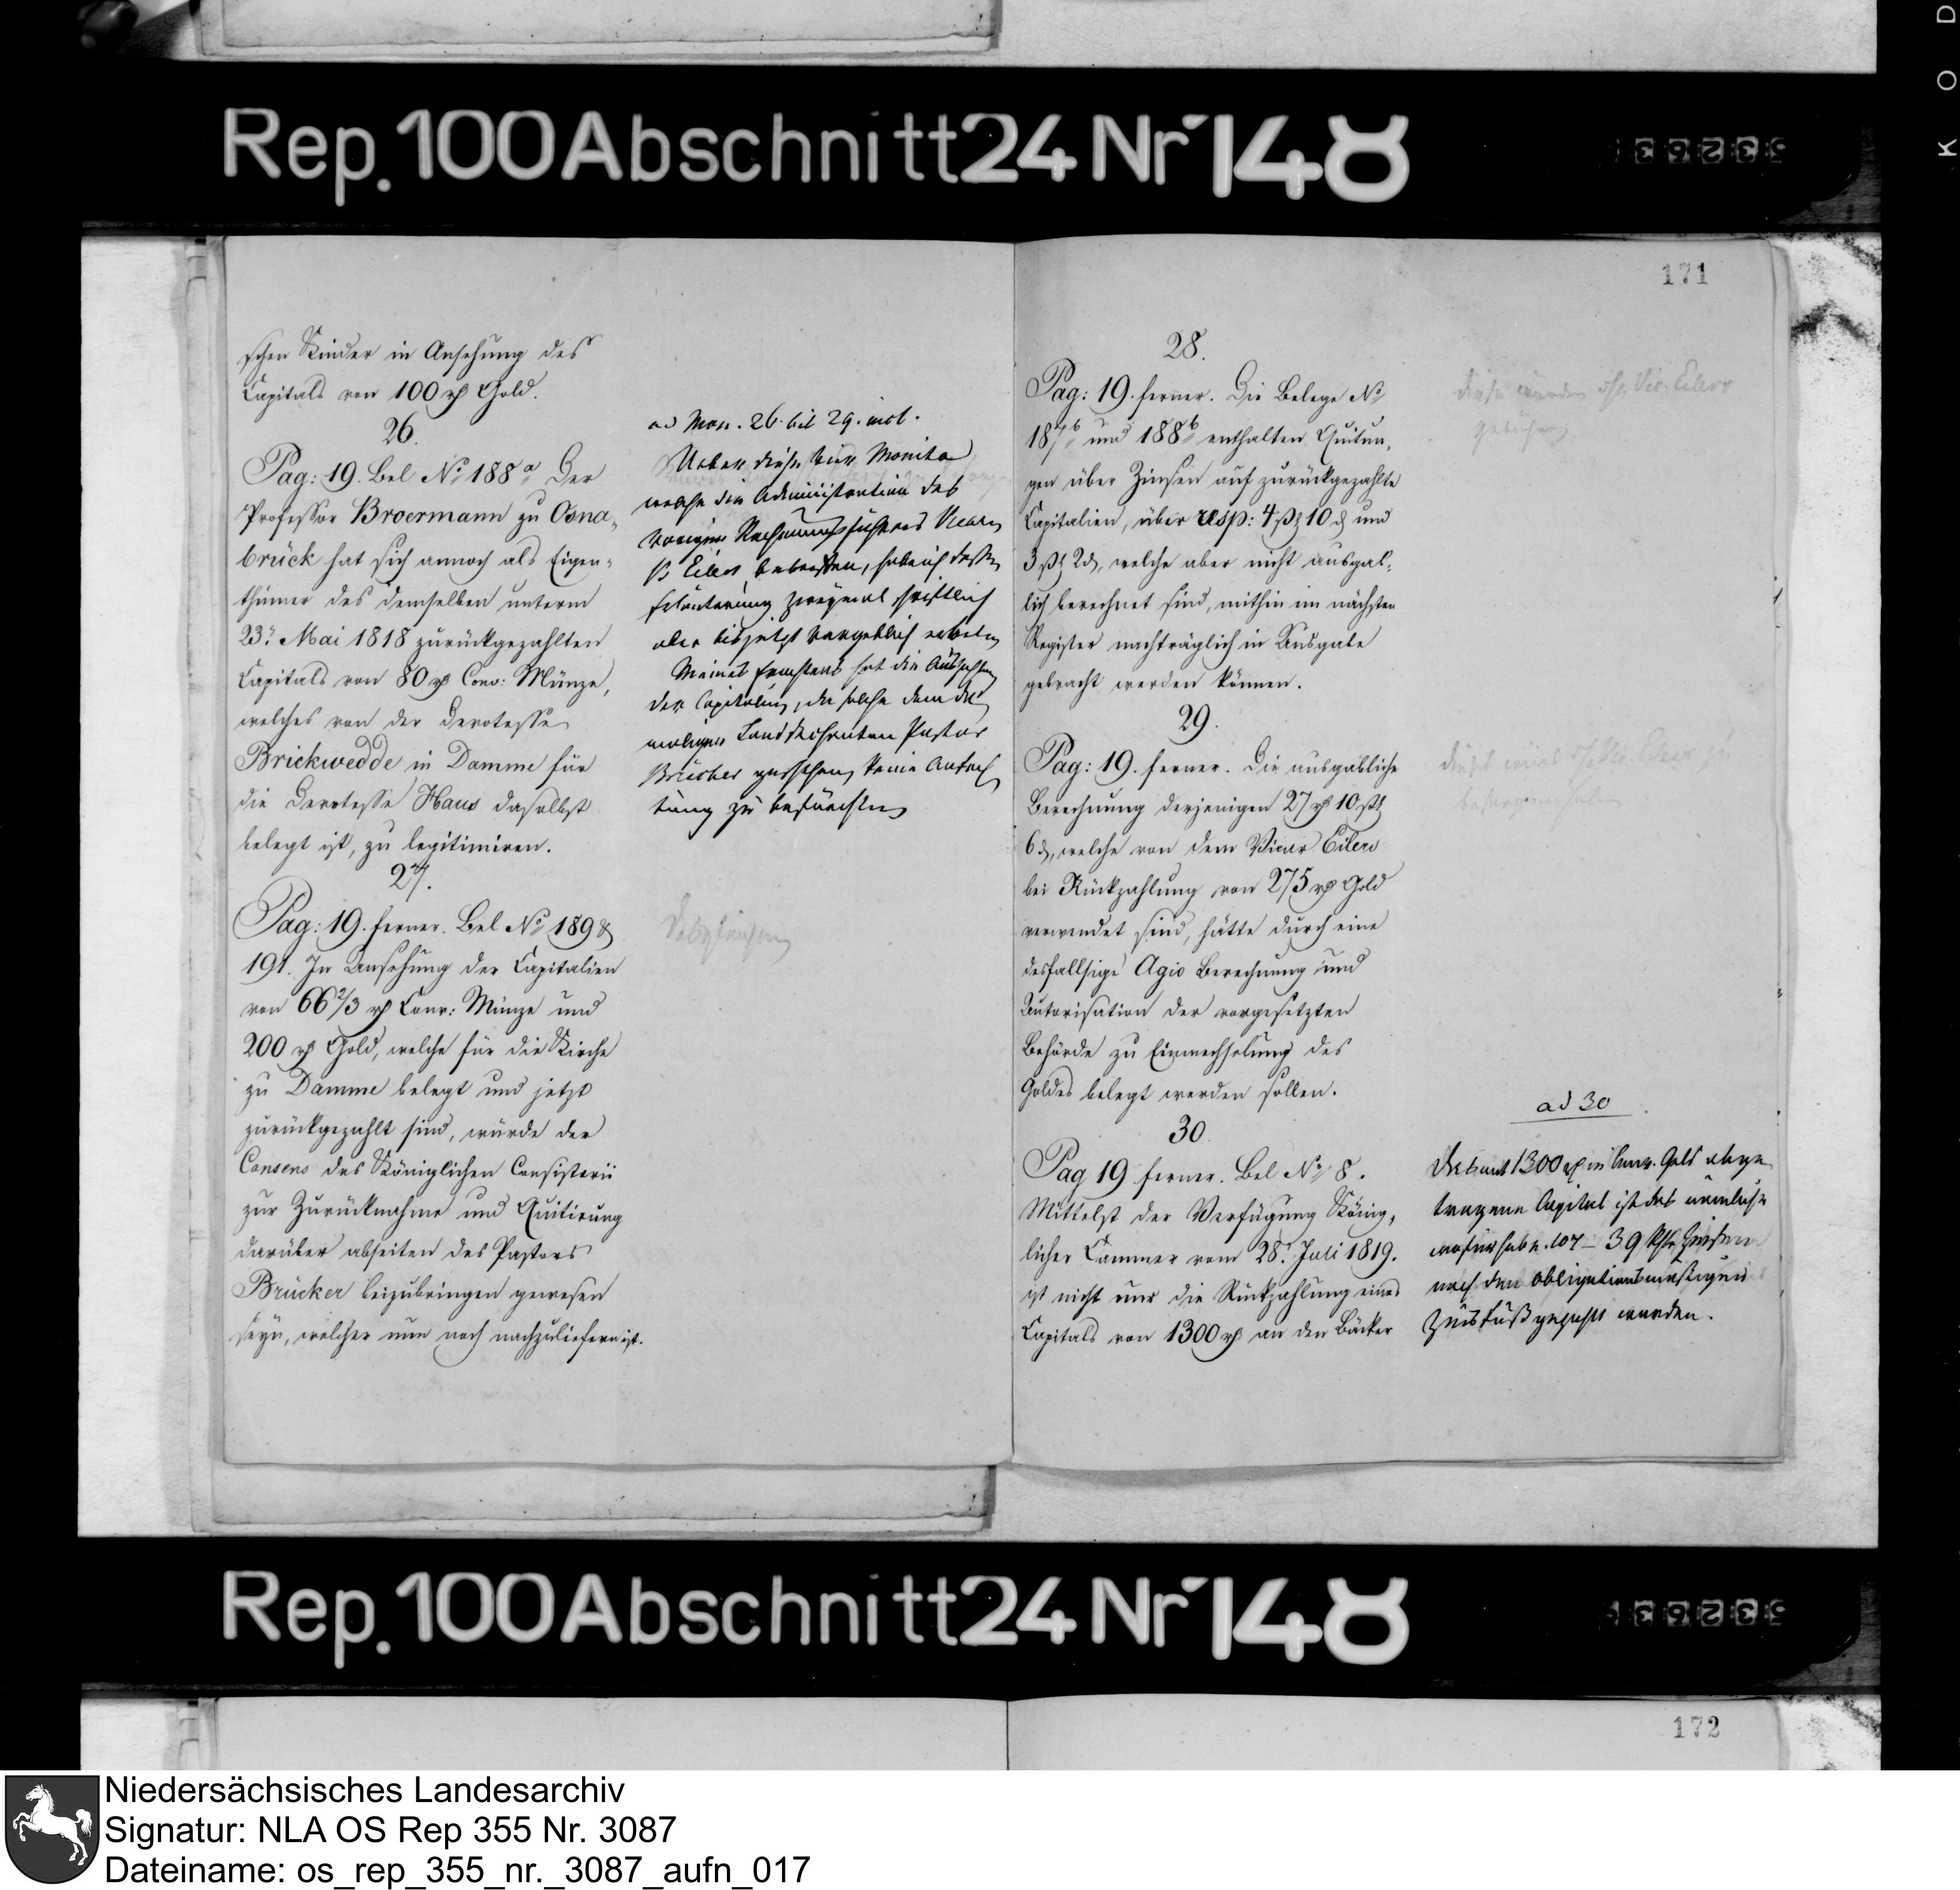 K O D
Rep. 100 Abschnitt 24 Nr 148
schen Kinder in Ansehung des
Capitals von 100 rt Gold.
26.
Pag: 19. Bel No 188a. Der
Professor Broermann zu Osna-
brück hat sich annoch als Eigen-
thümer des demselben unterm
23t Mai 1818 zurückgezahlten
Capitals von 80 rt Conv: Münze,
welches von der Devotesse
Brickwedde in Damme für
die Devotesse Haus daselbst
belegt ist, zu legitimiren.
27.
Pag: 19. ferner. Bel No 189 &
191. In Ansehung der Capitalien
von 66 2/3 rt Conv: Münze und
200 rt Gold, welche für die Kirche
zu Damme belegt und jetzt
zurückgezahlt sind, würde der
Consens des Königlichen Consistorii
zur Zurücknahme und Quitirung
darüber abseiten des Pastors
Brücker beizubringen gewesen
seyn, welcher nun noch nachzuliefern ist.
ad Mon. 26 bis 29. incl.
Ueber diese vier Monita
welche die Administration des
vorigen Rechnungsführers Vicars
Eilers betreffen, habe ich dessen
Erläuterung zweymal schriftlich
aber bis jetzt vergeblich erbeten
Meines Erachtens hat die Auszahlung
der Capitalien, da solche dem da
maligen Landdechanten Pastor
Brücker geschehen, keine Anfech
tung zu befürchten
171
28.
Pag: 19. ferner. Die Belege No
187b und 188b enthalten Quitun-
gen über Zinsen auf zurückgezahlte
Capitalien, über resp: 4 ßl 10 d und
3 ßl 2 d, welche aber nicht ausgab-
lich berechnet sind, mithin im nächsten
Register nachträglich in Ausgabe
gebracht werden können.
29.
Pag: 19. ferner. Die ausgäbliche
Berechnung derjenigen 27 rt 10 ßl
6 d, welche von dem Vicar Eilers
bei Rückzahlung von 275 rt Gold
verwendet sind, hätte durch eine
desfallsige Agio Berechnung und
Autorisation der vorgesetzten
Behörde zu Einwechselung des
Goldes belegt werden sollen.
30.
Pag 19 ferner. Bel No 8.
Mittelst der Verfügung König-
licher Cammer vom 28t Juli 1819.
ist nicht nur die Rückzahlung eines
Capitals von 1300 rt an den Bäcker
diese werden Vic. Eilers
gebühren
dieses wird
ad 30
Das mit 1300 rt in Conv. Geld abge
tragene Capital ist das nemliche
wofür sub n. 107 – 39 Rthr Zinsen
nach dem obligationsmäßigen
Zinsfuß gezahlt worden.
Rep. 100 Abschnitt 24 Nr 148
172
Niedersächsisches Landesarchiv
Signatur: NLA OS Rep 355 Nr. 3087
Dateiname: os_rep_355_nr._3087_aufn_017